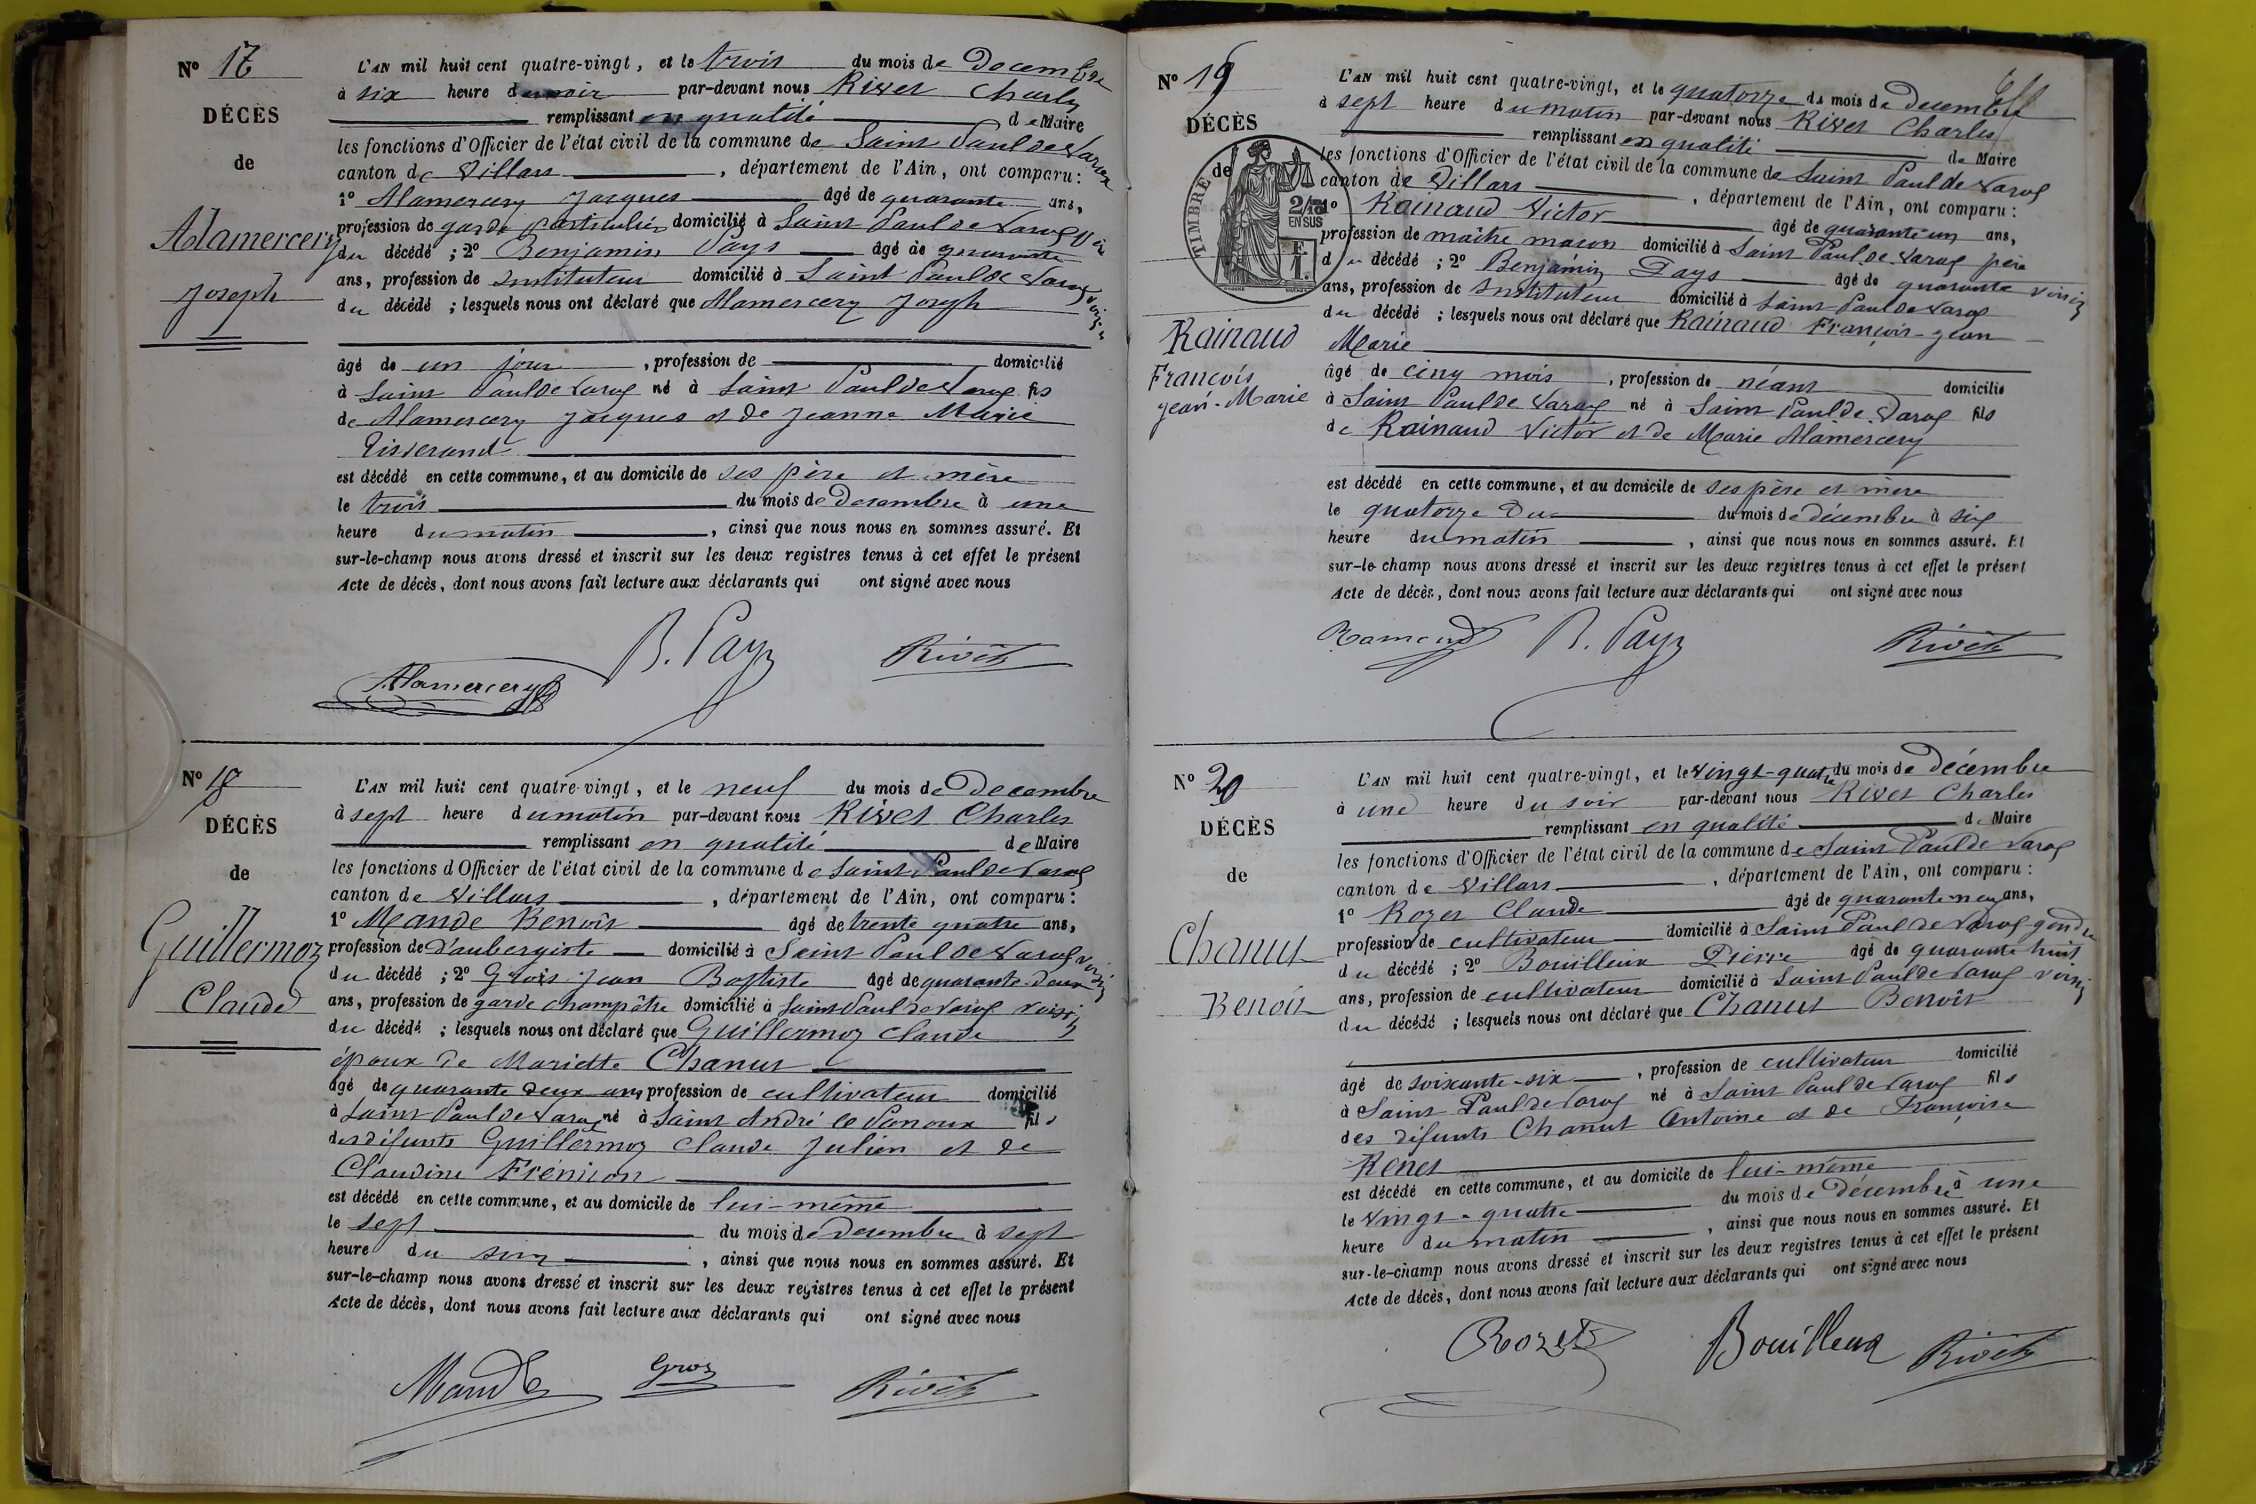 N° 17
DÉCÈS
de
Alamercery
Joseph
L'AN mil huit cent quatre-vingt, et le trois du mois de Decembre
à six heure du soir par-devant nous Rivet Charles
remplissant en qualité de Maire
les fonctions d'Officier de l'état civil de la commune de Saint Paul de Varax
canton de Villars, département de l'Ain, ont comparu:
1° Alamercery Jacques âgé de quarante ans,
profession de garde particulier domicilié à Saint Paul de Varax père
du décédé; 2° Benjamin Pays âgé de quarante
ans, profession de Instituteur domicilié à Saint Paul de Varax voisin
du décédé; lesquels nous ont déclaré que Alamercery Joseph
âgé de un jour, profession de domicilié
à Saint Paul de Varax né à Saint Paul de Varax fils
de Alamercery Jacques et de Jeanne Marie
Tisserand
est décédé en cette commune, et au domicile de ses père et mère
le trois du mois de Decembre à une
heure du matin, ainsi que nous nous en sommes assuré. Et
sur-le-champ nous avons dressé et inscrit sur les deux registres tenus à cet effet le présent
Acte de décès, dont nous avons fait lecture aux déclarants qui ont signé avec nous
Alamercery B. Pays Rivet
N° 18
DÉCÈS
de
Guillermoz
Claude
L'AN mil huit cent quatre-vingt, et le neuf du mois de Decembre
à sept heure du matin par-devant nous Rivet Charles
remplissant en qualité de Maire
les fonctions d'Officier de l'état civil de la commune de Saint Paul de Varax
canton de Villars, département de l'Ain, ont comparu:
1° Mande Benoît âgé de trente quatre ans,
profession de d'aubergiste domicilié à Saint Paul de Varax voisin
du décédé; 2° Gros Jean Baptiste âgé de quarante-deux
ans, profession de garde champêtre domicilié à Saint Paul de Varax voisin
du décédé; lesquels nous ont déclaré que Guillermoz Claude
époux de Mariette Chanut
âgé de quarante deux ans, profession de cultivateur domicilié
à Saint Paul de Varax né à Saint André le Panoux fils
des défunts Guillermoz Claude Julien et de
Claudine Frénion
est décédé en cette commune, et au domicile de lui-même
le sept du mois de Decembre à sept
heure du soir, ainsi que nous nous en sommes assuré. Et
sur-le-champ nous avons dressé et inscrit sur les deux registres tenus à cet effet le présent
Acte de décès, dont nous avons fait lecture aux déclarants qui ont signé avec nous
Mande Gros Rivet
N° 19
DÉCÈS
de
TIMBRE
2/10
EN SUS
F
1.
Rainaud
François
Jean-Marie
L'AN mil huit cent quatre-vingt, et le quatorze du mois de Decembre
à sept heure du matin par-devant nous Rivet Charles
remplissant en qualité de Maire
les fonctions d'Officier de l'état civil de la commune de Saint Paul de Varax
canton de Villars, département de l'Ain, ont comparu:
1° Rainaud Victor âgé de quarante un ans,
profession de maître maçon domicilié à Saint Paul de Varax père
du décédé; 2° Benjamin Pays âgé de quarante
ans, profession de Instituteur domicilié à Saint Paul de Varax voisin
du décédé; lesquels nous ont déclaré que Rainaud François-Jean
Marie
âgé de cinq mois, profession de néant domicilié
à Saint Paul de Varax né à Saint Paul de Varax fils
de Rainaud Victor et de Marie Alamercery
est décédé en cette commune, et au domicile de ses père et mère
le quatorze du du mois de décembre à six
heure du matin, ainsi que nous nous en sommes assuré. Et
sur-le-champ nous avons dressé et inscrit sur les deux registres tenus à cet effet le présent
Acte de décès, dont nous avons fait lecture aux déclarants qui ont signé avec nous
B. Pays Rivet
N° 20
DÉCÈS
de
Chanut
Benoît
L'AN mil huit cent quatre-vingt, et le vingt-quatre du mois de Décembre
à une heure du soir par-devant nous Rivet Charles
remplissant en qualité de Maire
les fonctions d'Officier de l'état civil de la commune de Saint Paul de Varax
canton de Villars, département de l'Ain, ont comparu:
1° Rozet Claude âgé de quarante neuf ans,
profession de cultivateur domicilié à Saint Paul de Varax gendre
du décédé; 2° Bouilleux Pierre âgé de quarante huit
ans, profession de cultivateur domicilié à Saint Paul de Varax voisin
du décédé; lesquels nous ont déclaré que Chanut Benoît
âgé de soixante-six, profession de cultivateur domicilié
à Saint Paul de Varax né à Saint Paul de Varax fils
des défunts Chanut Antoine et de Françoise
Renet
est décédé en cette commune, et au domicile de lui-même
le vingt-quatre du mois de décembre à une
heure du matin, ainsi que nous nous en sommes assuré. Et
sur-le-champ nous avons dressé et inscrit sur les deux registres tenus à cet effet le présent
Acte de décès, dont nous avons fait lecture aux déclarants qui ont signé avec nous
Rozet Bouilleux Rivet